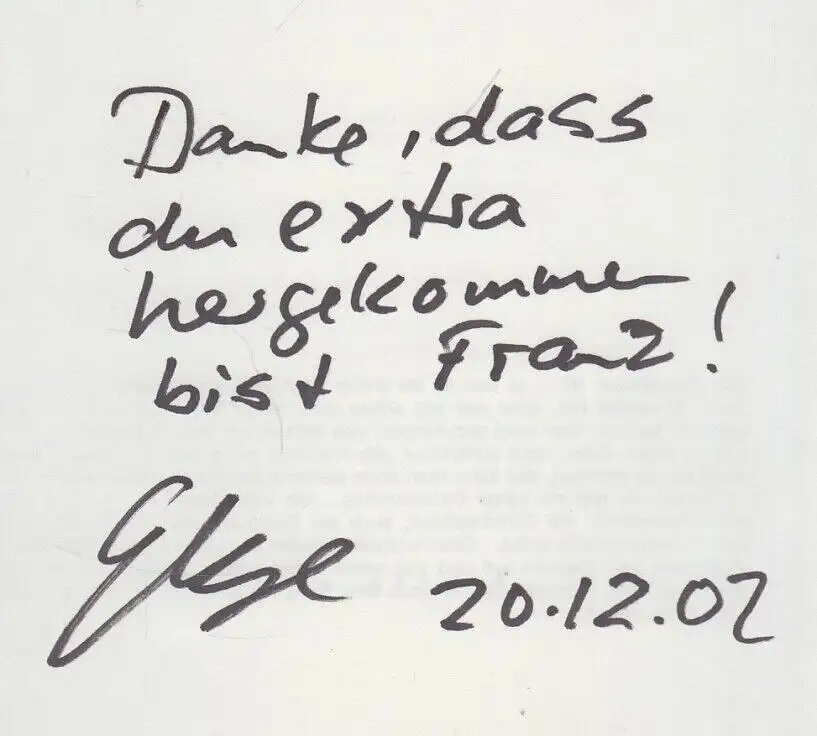 Danke, dass
du extra
hergekommen
bist Franz!
20.12.02